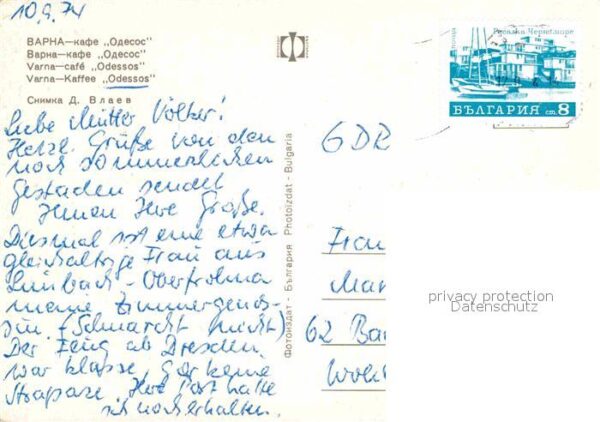 10.9.74
ВАРНА—кафе „Одесос"
Варна—кафе „Одесос"
Varna—café „Odessos"
Varna—Kaffee „Odessos"
Снимка Д. Влаев
Liebe Mutter Völker!
Herzl. Grüße von den
noch sommerlichen
Gestaden sendet
Ihnen Ihre Große.
Diesmal ist eine etwa
gleichaltrige Frau aus
Limbach-Oberfrohna
meine Zimmergenos-
sin. (Schnarcht nicht)
Der Flug ab Dresden
war klasse, gar keine
Strapaze. Ihre Post hatte
ich noch erhalten.
Фотоиздат - България Photoizdat - Bulgaria
БЪЛГАРИЯ ст. 8
GDR
Frau
Mar
62 Ba
privacy protection
Datenschutz